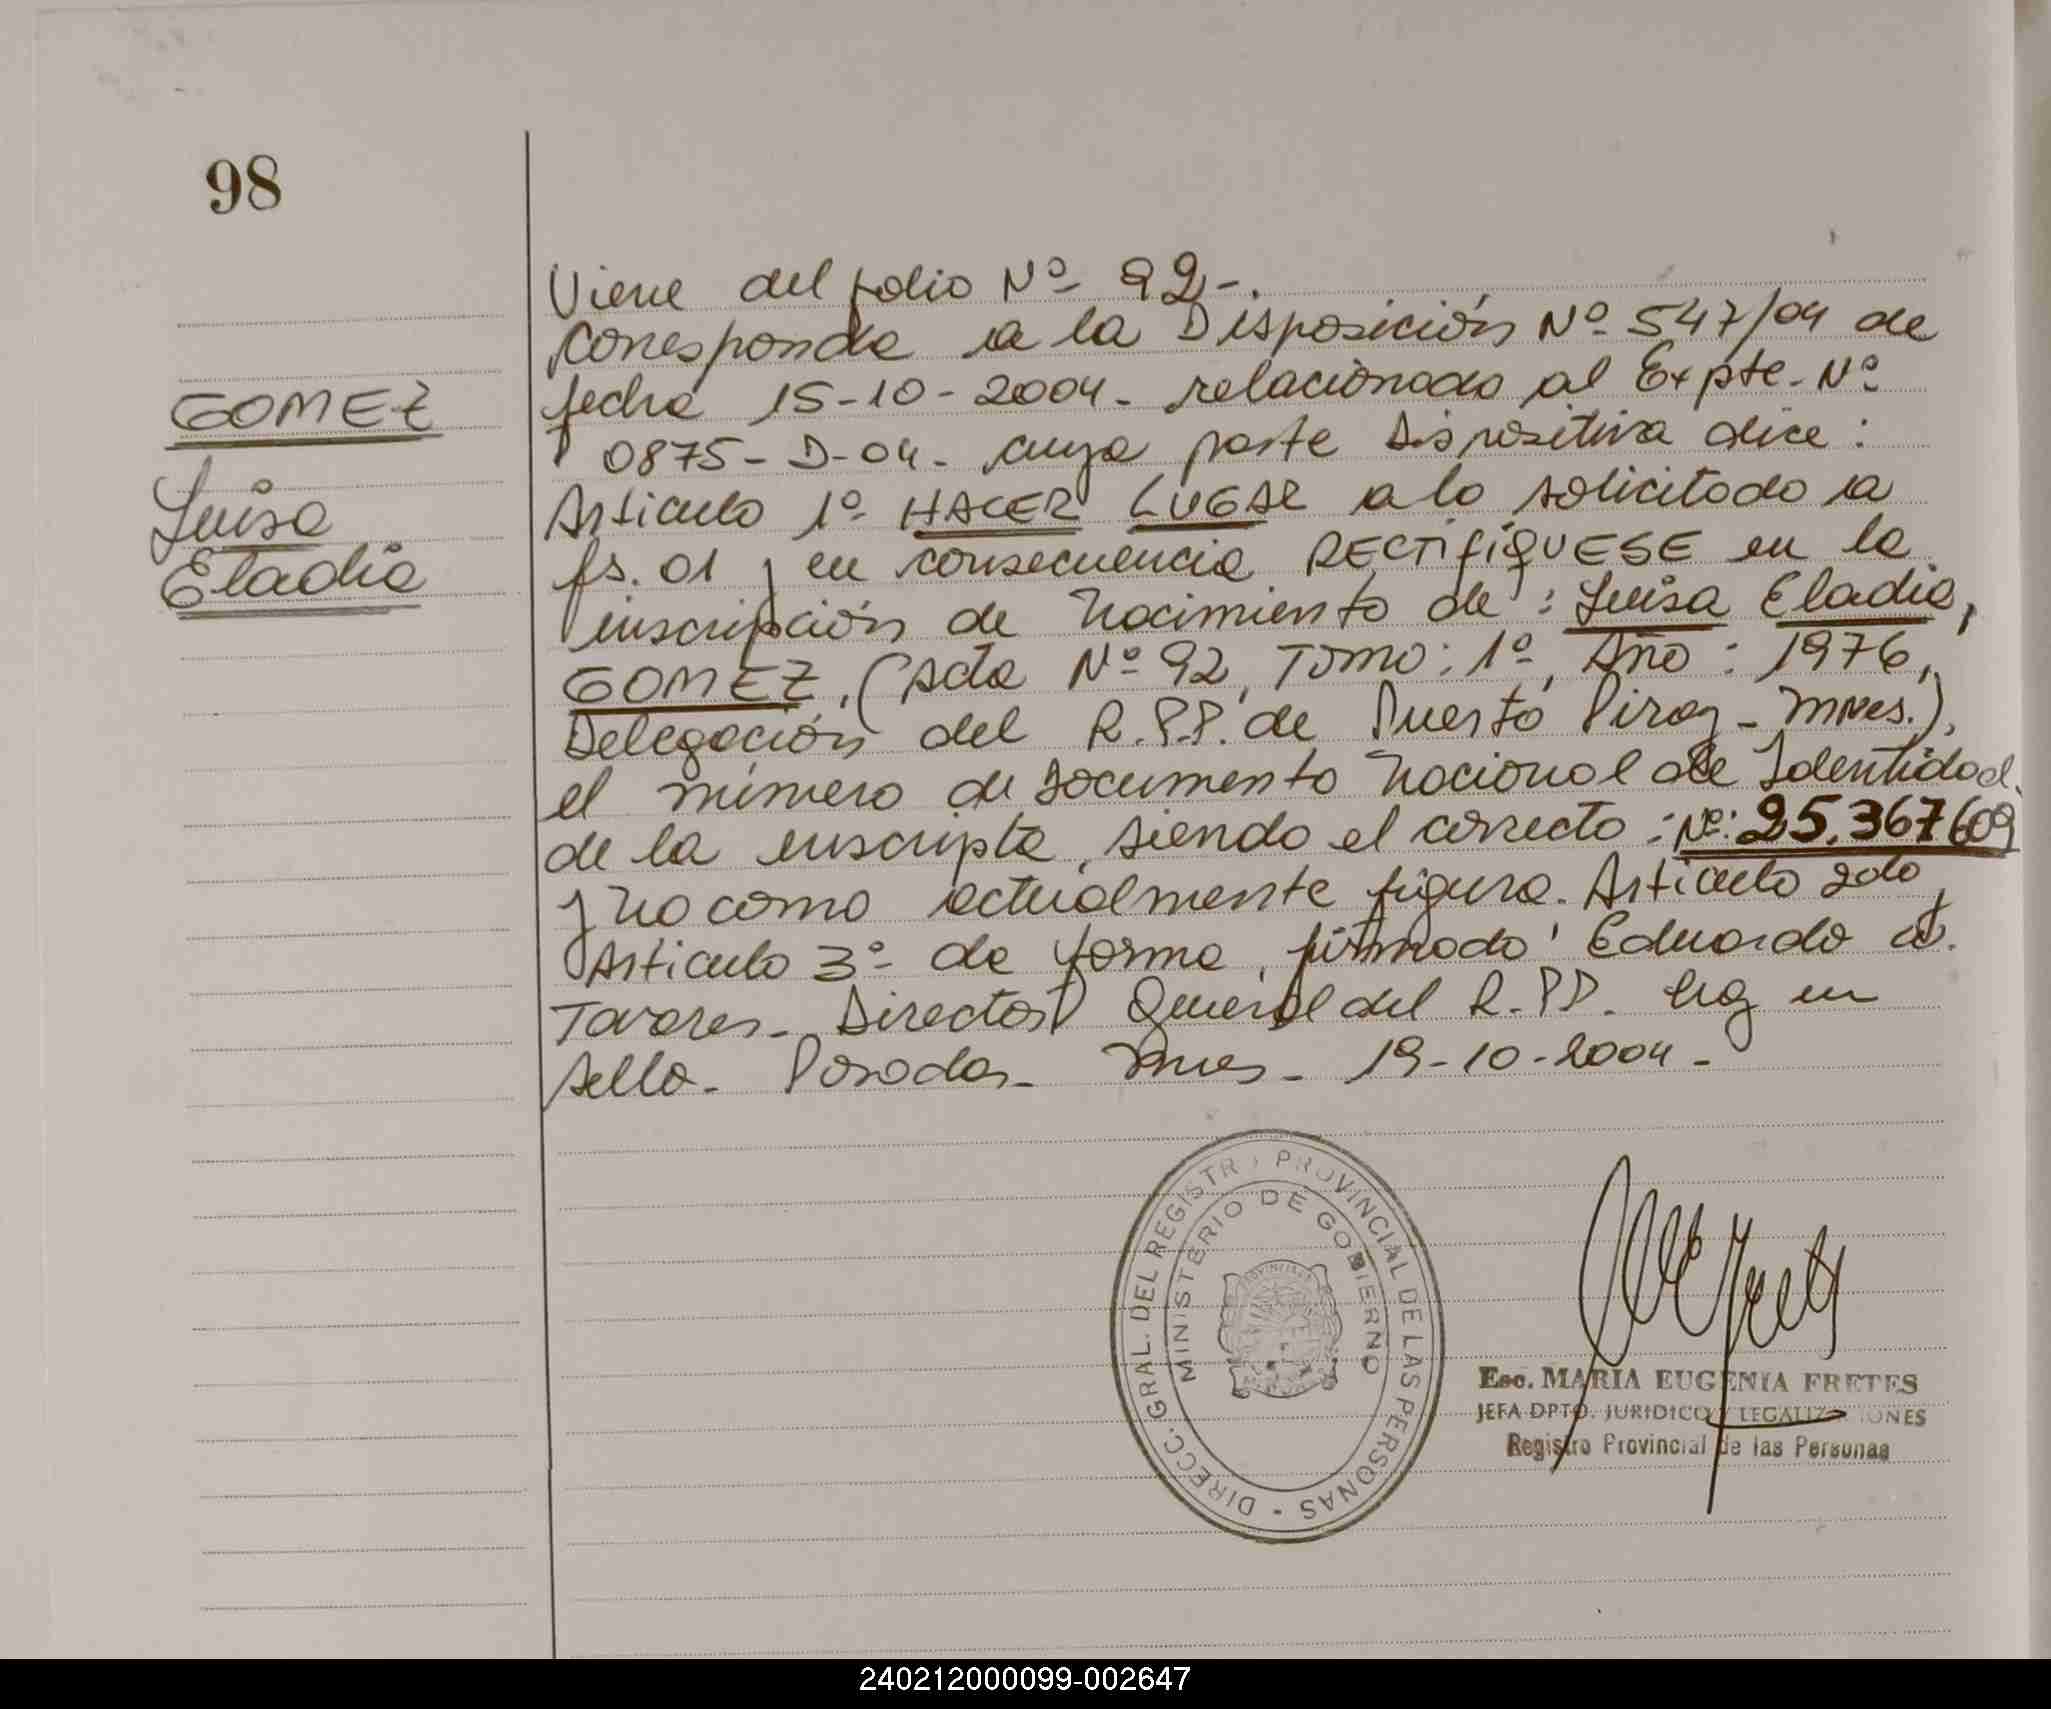 98
GOMEZ
Luisa
Eladia
Viene del folio Nº 92-.
Corresponde a la Disposición Nº 547/04 de
fecha 15-10-2004- relacionado al Expte- Nº
0875-D-04- cuya parte Dispositiva dice:
Articulo 1º HACER LUGAR a lo solicitado a
fs. 01 y en consecuencia RECTIFIQUESE en la
inscripción de Nacimiento de: Luisa Eladia,
GOMEZ, (Acta Nº 92, Tomo: 1º, Año: 1976,
Delegación del R.P.P. de Puerto Piray - Mnes.),
el número de Documento Nacional de Identidad
de la inscripta, siendo el correcto: Nº: 25.367609
y no como actualmente figura. Articulo 2do y
Articulo 3º de forma, firmado: Eduardo
Tavares- Director General del R.P.P. hay un
sello- Posadas- Mnes- 19-10-2004-
DIRECC. GRAL. DEL REGISTRO PROVINCIAL DE LAS PERSONAS -
MINISTERIO DE GOBIERNO
Esc. MARIA EUGENIA FRETES
JEFA DPTO. JURIDICO Y LEGALIZACIONES
Registro Provincial de las Personas
240212000099-002647